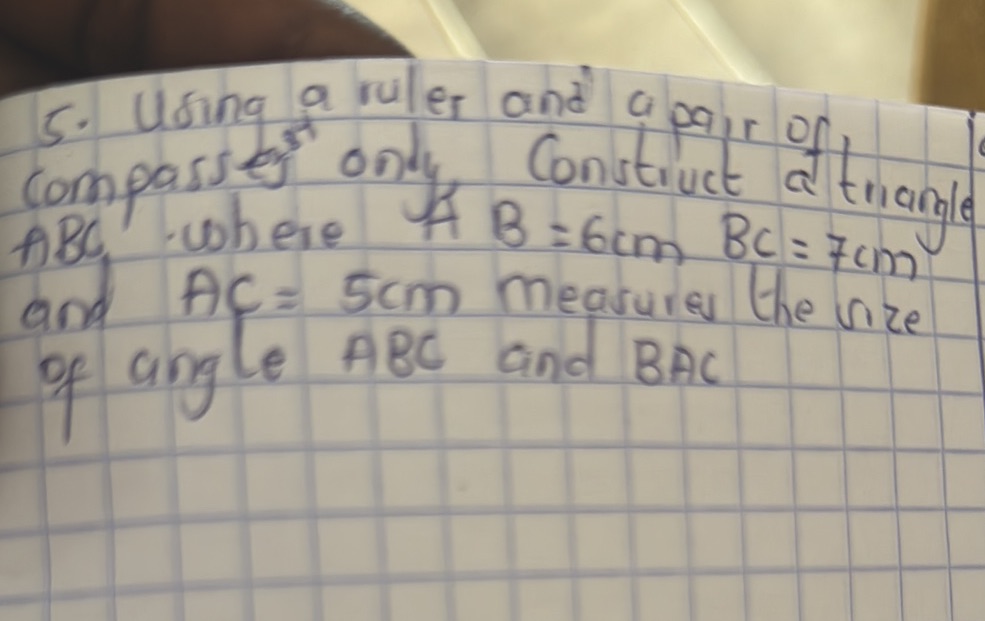 5. Using a ruler and a pair of
compasses only, Construct a triangle
ABC where AB = 6cm BC = 7cm
and AC = 5cm measures the size
of angle ABC and BAC